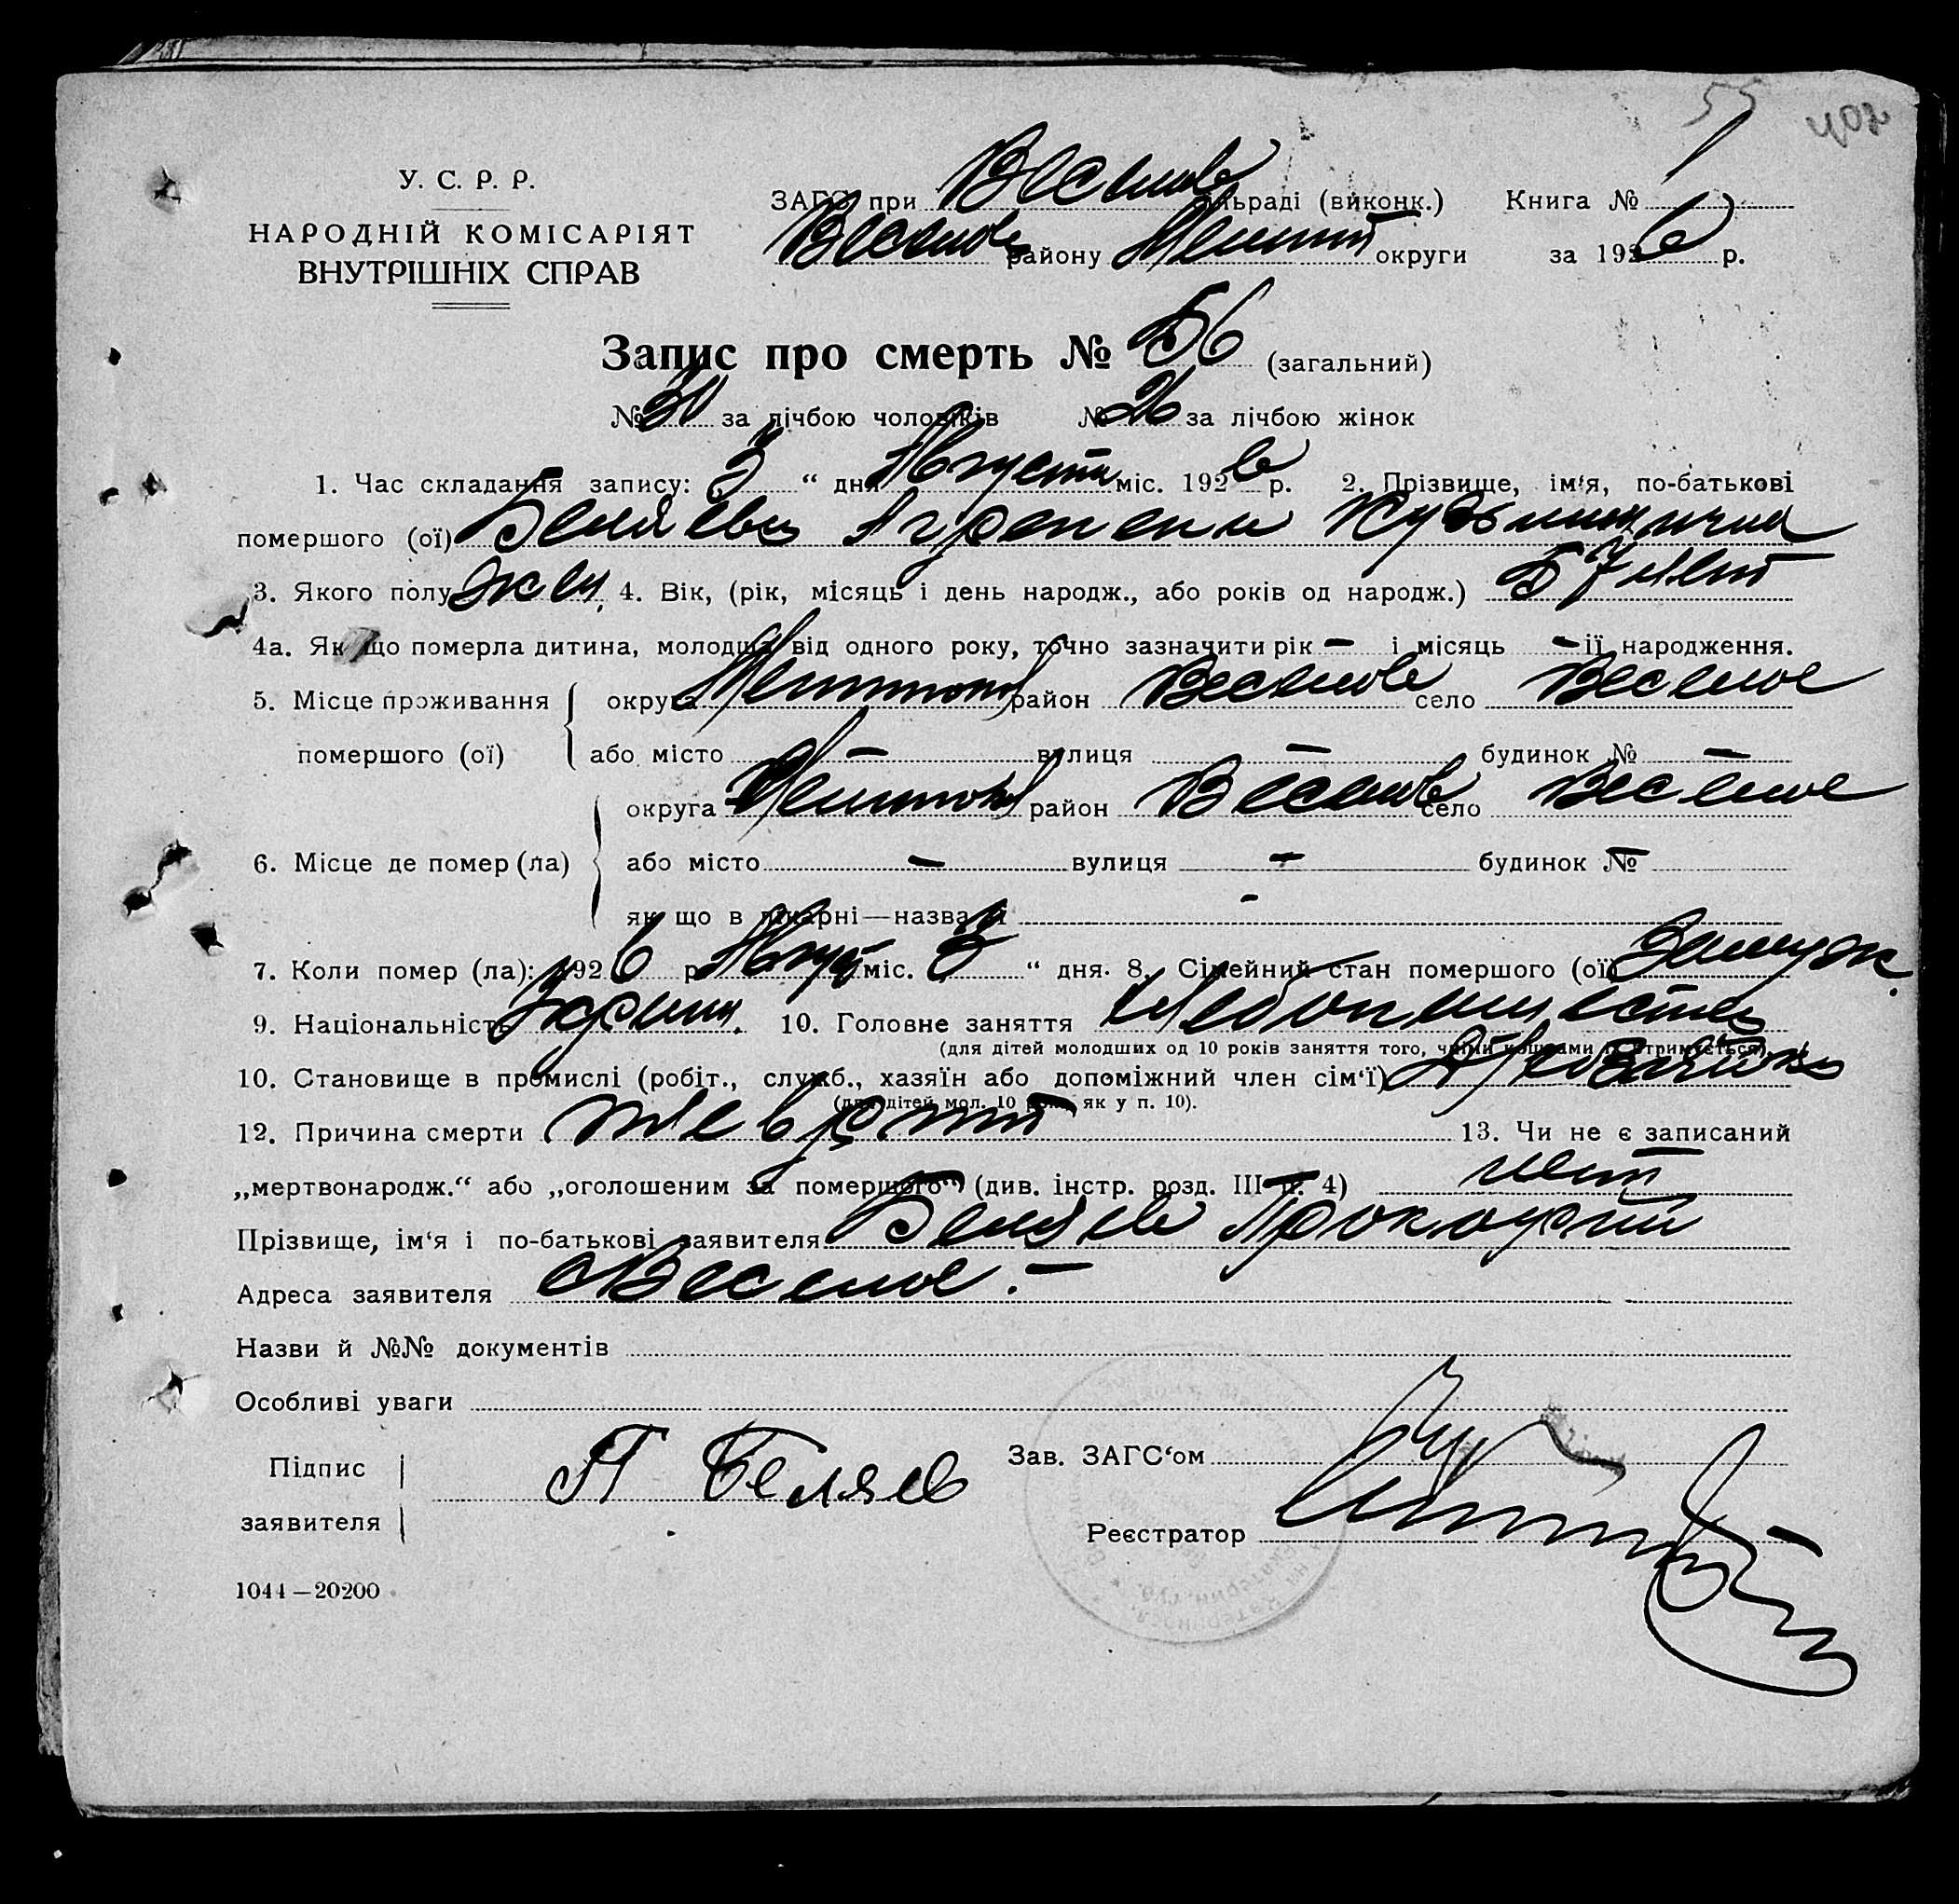 55 402
У. С. Р. Р.
НАРОДНІЙ КОМІСАРІЯТ
ВНУТРІШНІХ СПРАВ
ЗАГС при Веселов сільраді (виконк.) Книга № 1
Веселов району Мелит округи за 1926 р.
Запис про смерть № 56 (загальний)
№ 30 за лічбою чоловіків № 26 за лічбою жінок
1. Час складання запису: 3 “ дня Августа міс. 1926 р. 2. Прізвище, ім‘я, по-батькові
помершого (ої) Беляева Агрепена Кузьминична
3. Якого полу жен. 4. Вік, (рік, місяць і день народж., або років од народж.) 57 лет
4а. Як що померла дитина, молодша від одного року, точно зазначити рік — і місяць — її народження.
5. Місце проживання округа район Веселов село Веселое
помершого (ої) або місто — вулиця — будинок № —
округа район Веселов село Веселое
6. Місце де помер (ла) або місто — вулиця — будинок № —
як що в лікарні—назва її -
7. Коли помер (ла): 1926 р. Авгус міс. 3 “ дня. 8. Сімейний стан помершого (ої) Замуж.
9. Національність Украин. 10. Головне заняття Хлебопашество
(для дітей молодших од 10 років заняття того, чиїми коштами їх утримується)
10. Становище в промислі (робіт., служб., хазяїн або допоміжний член сім‘ї)
(для дітей мол. 10 рок. як у п. 10).
12. Причина смерти 13. Чи не є записаний
„мертвонародж.“ або „оголошеним за помершого“ (див. інстр. розд. III п. 4) нет
Прізвище, ім‘я і по-батькові заявителя Беляев Прокофий
Адреса заявителя с Веселое. —
Назви й №№ документів
Особливі уваги
Підпис
заявителя П Беляев
Зав. ЗАГС‘ом
Реєстратор
1044—20200